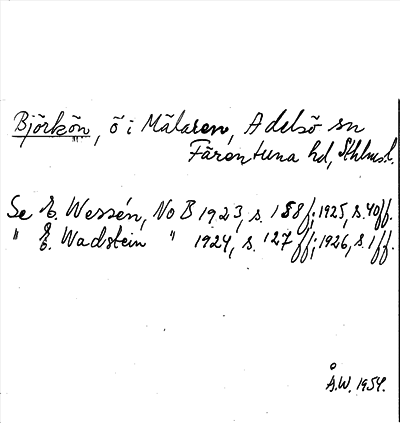 Björkön, ö i Mälaren, Adelsö sn
Färentuna hd, Sthlms l.
Se E. Wessén, NoB 1923, s. 188 f; 1925, s. 40 ff.
" E. Wadstein " 1924, s. 127 ff; 1926, s. 1 ff.
Å.W. 1954.